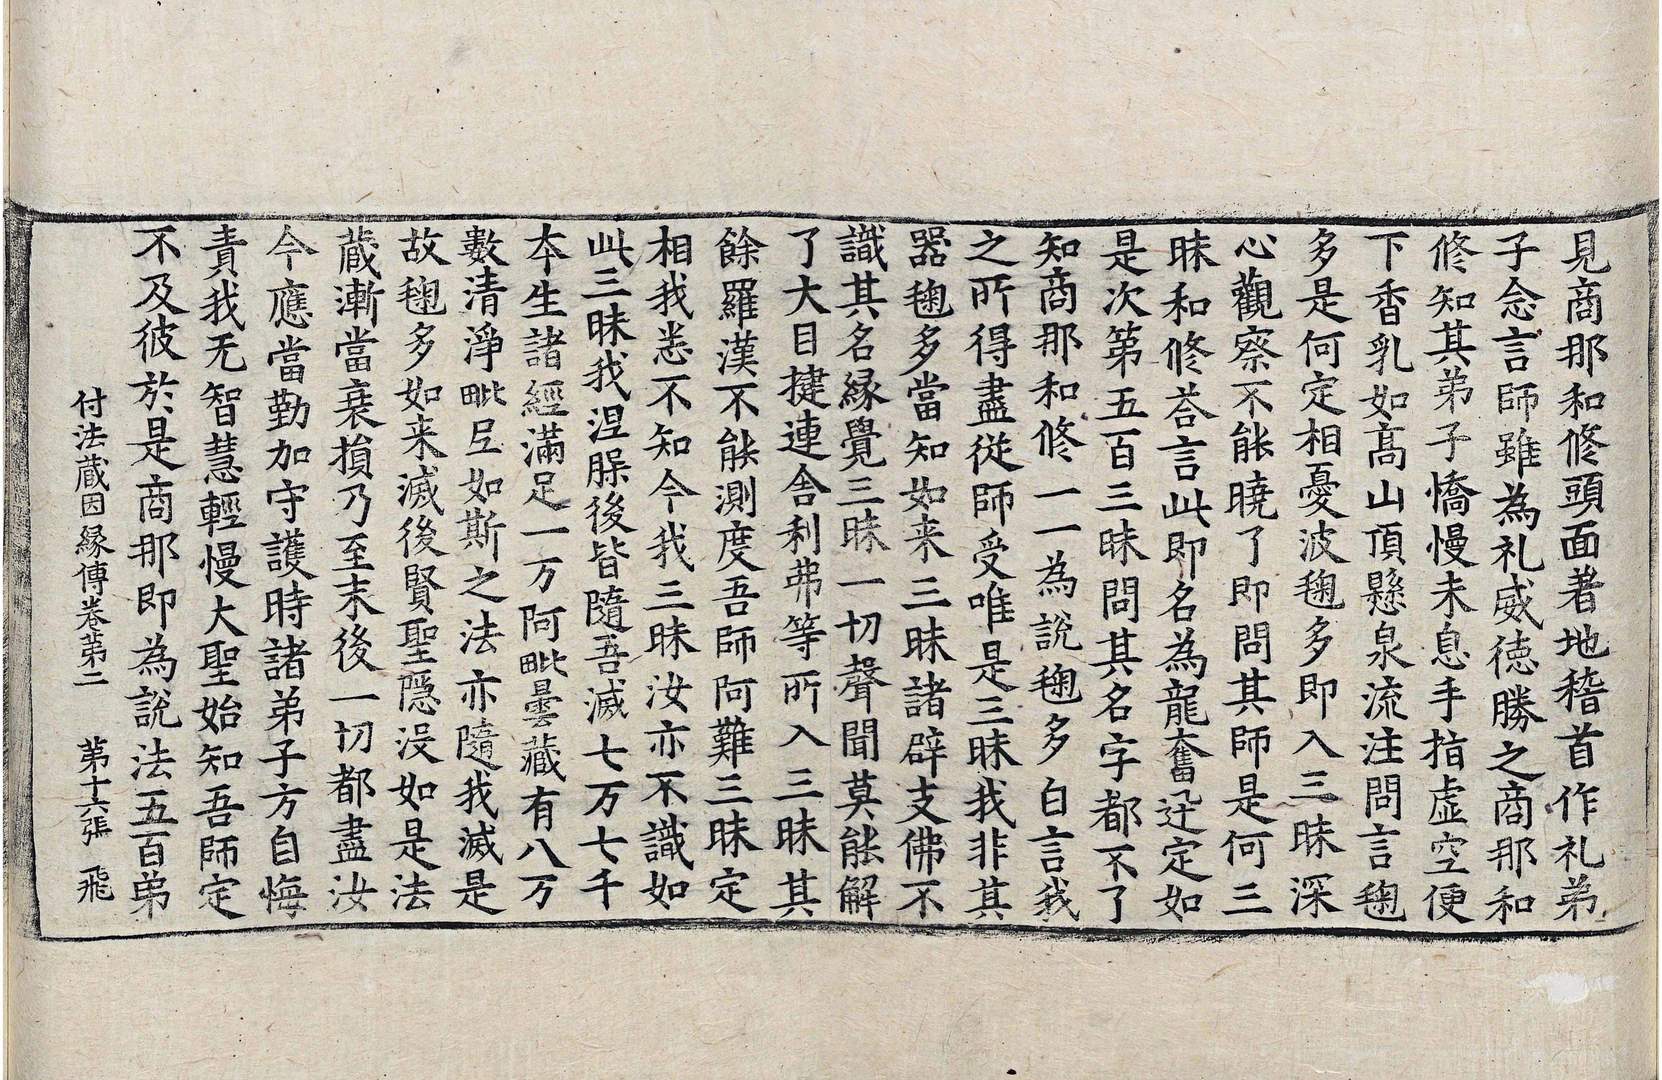 見商那和修頭面著地稽首作礼弟
子念言師雖為礼威徳勝之商那和
修知其弟子憍慢未息手指虚空便
下香乳如髙山頂懸泉流注問言𭀚
多是何定相憂波𭀚多即入三昧深
心觀察不能曉了即問其師是何三
昧和修荅言此即名為龍奮迅定如
是次第五百三昧問其名字都不了
知商那和修一一為說𭀚多白言我
之所得盡從師受唯是三昧我非其
器𭀚多當知如来三昧諸辟支佛不
識其名縁覺三昧一切聲聞莫能解
了大目揵連舎利弗等所入三昧其
餘羅漢不能測度吾師阿難三昧定
相我悉不知今我三昧汝亦不識如
此三昧我涅槃後皆隨吾滅七万七千
夲生諸經滿足一万阿毗曇藏有八万
數清淨毗尼如斯之法亦隨我滅是
故𭀚多如来滅後賢聖隠没如是法
蔵漸當衰損乃至末後一切都盡汝
今應當勤加守護時諸弟子方自悔
責我无智慧輕慢大聖始知吾師定
不及彼於是商那即為說法五百弟
付法蔵因縁傳卷苐二 苐十六張 飛